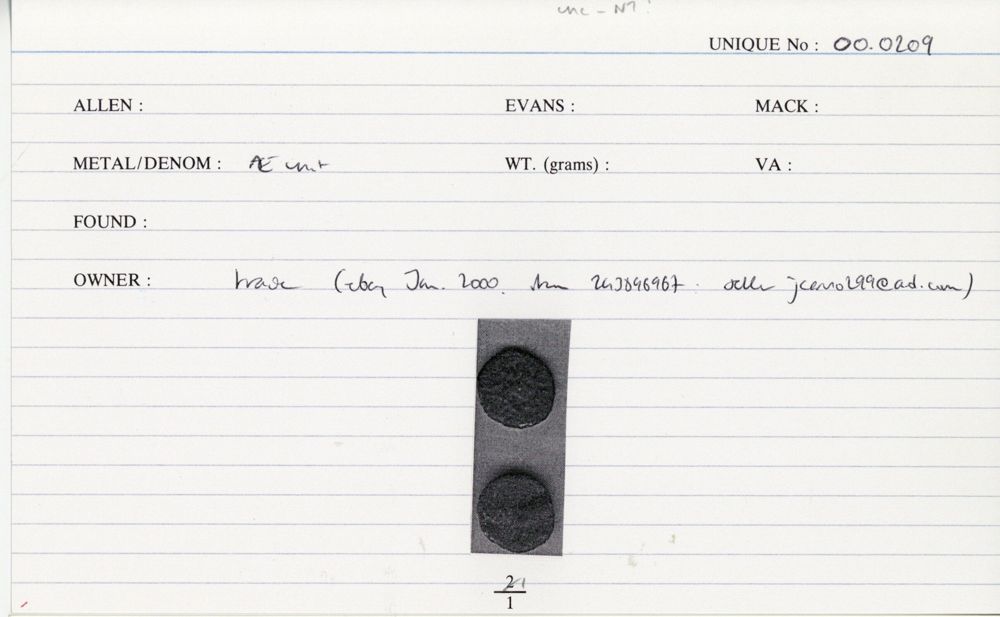 unc - NT?
UNIQUE No : 00.0209
ALLEN : EVANS : MACK :
METAL/DENOM : Æ unit WT. (grams) : VA :
FOUND :
OWNER : trade (ebay Jan. 2000. item seller
2
1